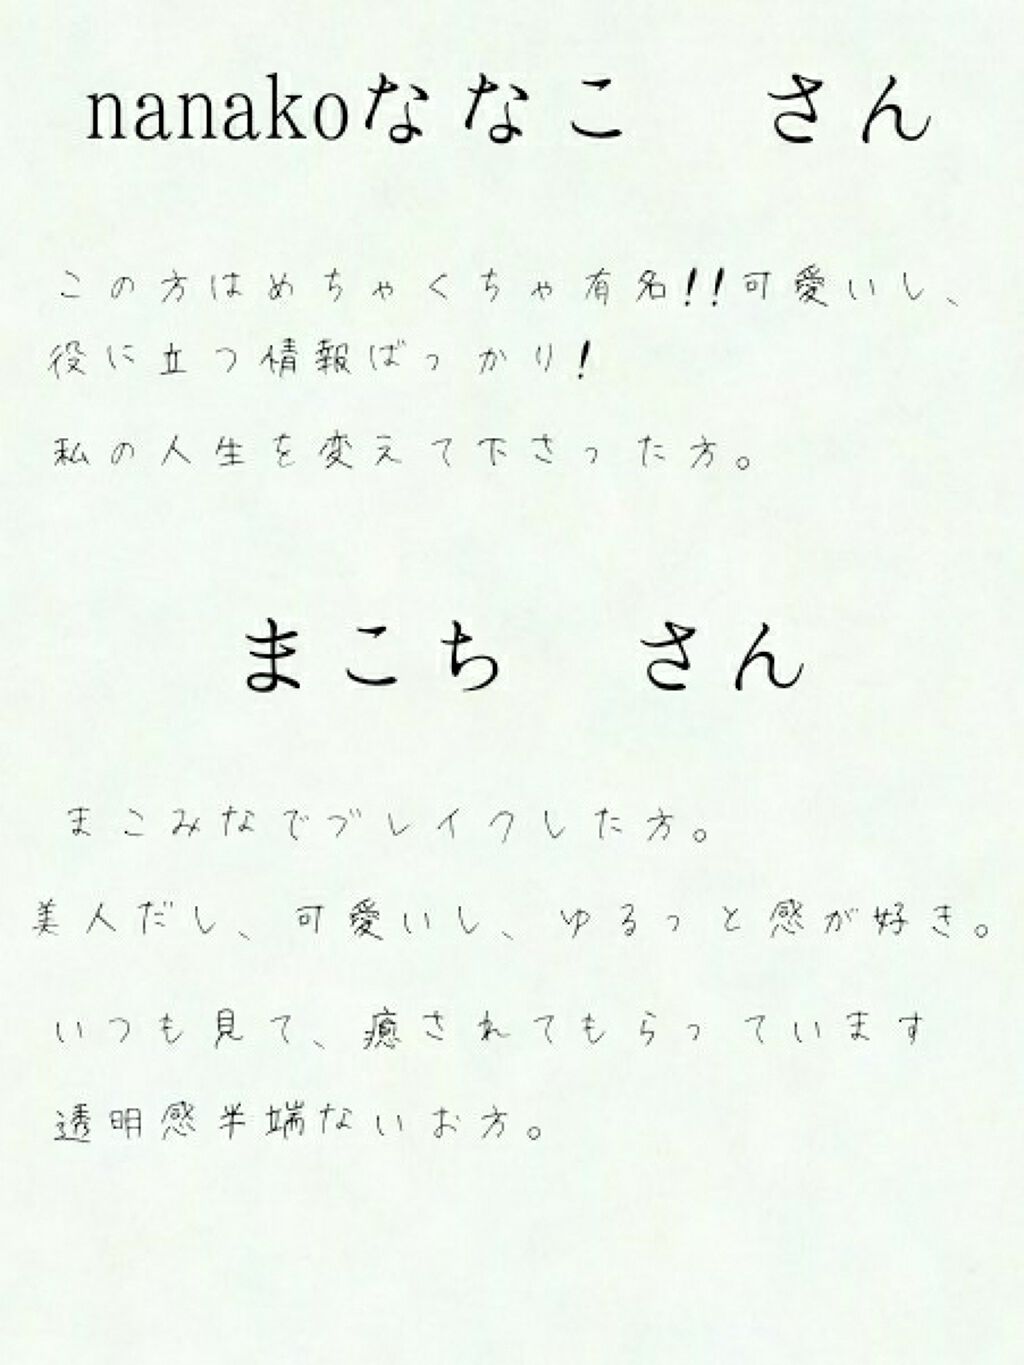 nanakoななこ　さん
この方はめちゃくちゃ有名!!可愛いし、
役に立つ情報ばっかり!
私の人生を変えて下さった方。
まこち　さん
まこみなでブレイクした方。
美人だし、可愛いし、ゆるっと感が好き。
いつも見て、癒されてもらっています
透明感半端ないお方。